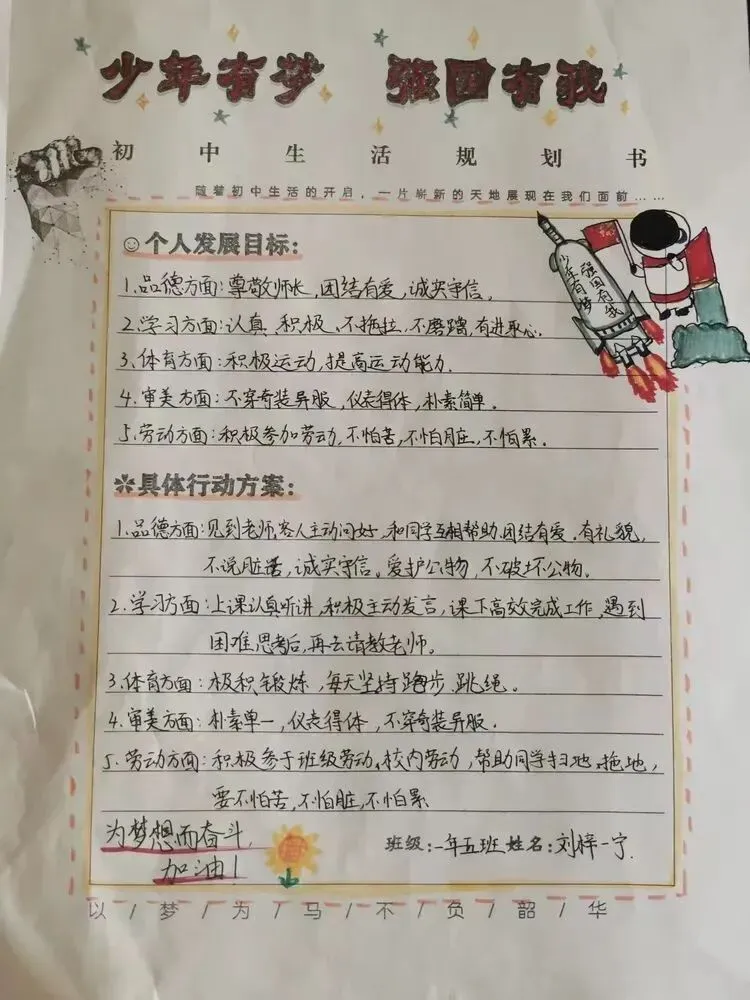 少年有梦 强国有我
初中生活规划书
随着初中生活的开启,一片崭新的天地展现在我们面前……
个人发展目标:
1.品德方面:尊敬师长,团结有爱,诚实守信。
2.学习方面:认真、积极、不拖拉,不磨蹭,有进取心。
3.体育方面:积极运动,提高运动能力.
4.审美方面:不穿奇装异服,仪态得体,朴素简单。
5.劳动方面:积极参加劳动,不怕苦,不怕脏,不怕累.
少年有梦
强国有我
具体行动方案:
1.品德方面:见到老师,客人主动问好,和同学互相帮助,团结有爱.有礼貌,
不说脏话,诚实守信。爱护公物,不破坏公物。
2.学习方面:上课认真听讲,积极主动发言,课下高效完成工作,遇到
困难思考后,再去请教老师。
3.体育方面:极积锻炼,每天坚持跑步、跳绳。
4.审美方面:朴素单一,仪态得体,不穿奇装异服.
5.劳动方面:积极参于班级劳动、校内劳动,帮助同学扫地、拖地,
要不怕苦,不怕脏,不怕累
为梦想而奋斗,
加油!
班级:一年五班 姓名:刘梓一宁.
以/梦/为/马/不/负/韶/华